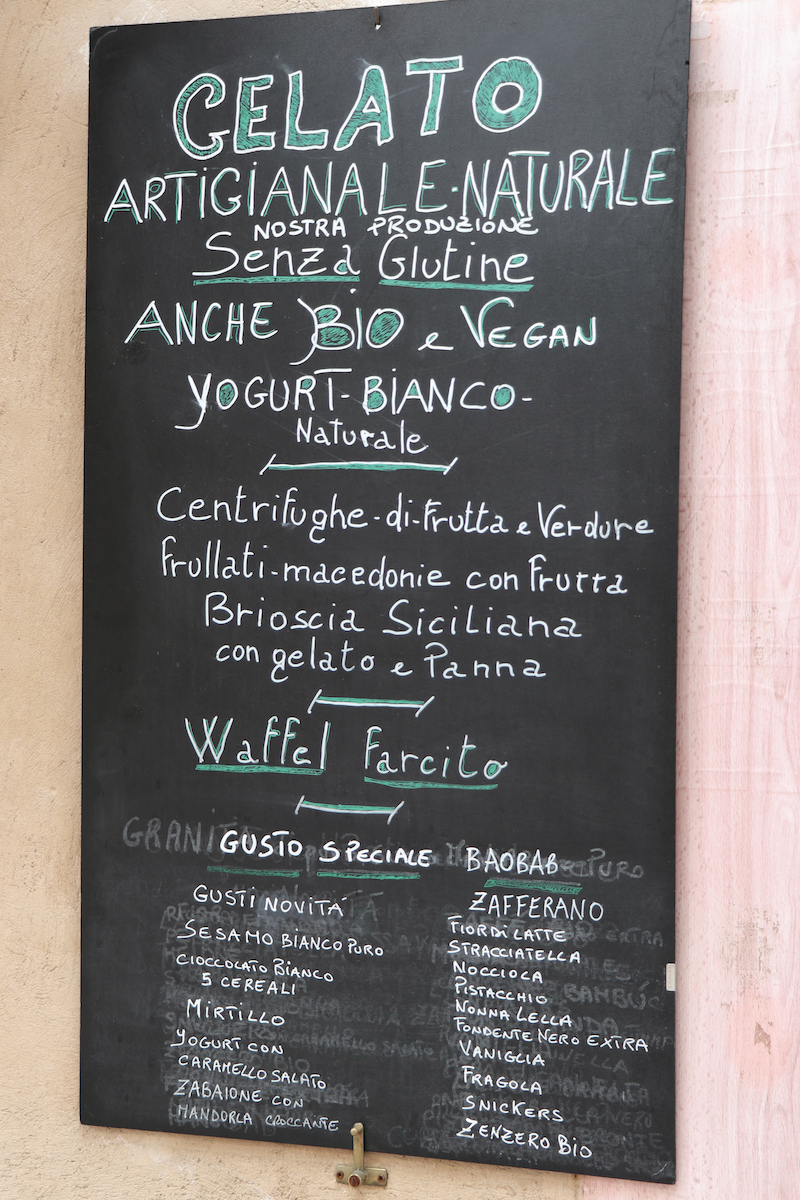 GELATO
ARTIGIANALE-NATURALE
NOSTRA PRODUZIONE
Senza Glutine
ANCHE BIO e VEGAN
YOGURT-BIANCO-
Naturale
Centrifughe-di-frutta e Verdure
Frullati-macedonie con frutta
Brioscia Siciliana
con gelato e Panna
Waffel farcito
GUSTO SPECIALE BAOBAB
GUSTI NOVITÁ
SESAMO BIANCO PURO
CIOCCOLATO BIANCO
5 CEREALI
MIRTILLO
YOGURT CON
CARAMELLO SALATO
ZABAIONE CON
MANDORLA CROCCANTE
ZAFFERANO
FIORDILATTE
STRACCIATELLA
NOCCIOLA
PISTACCHIO
NONNA LELLA
FONDENTE NERO EXTRA
VANIGLIA
FRAGOLA
SNICKERS
ZENZERO BIO